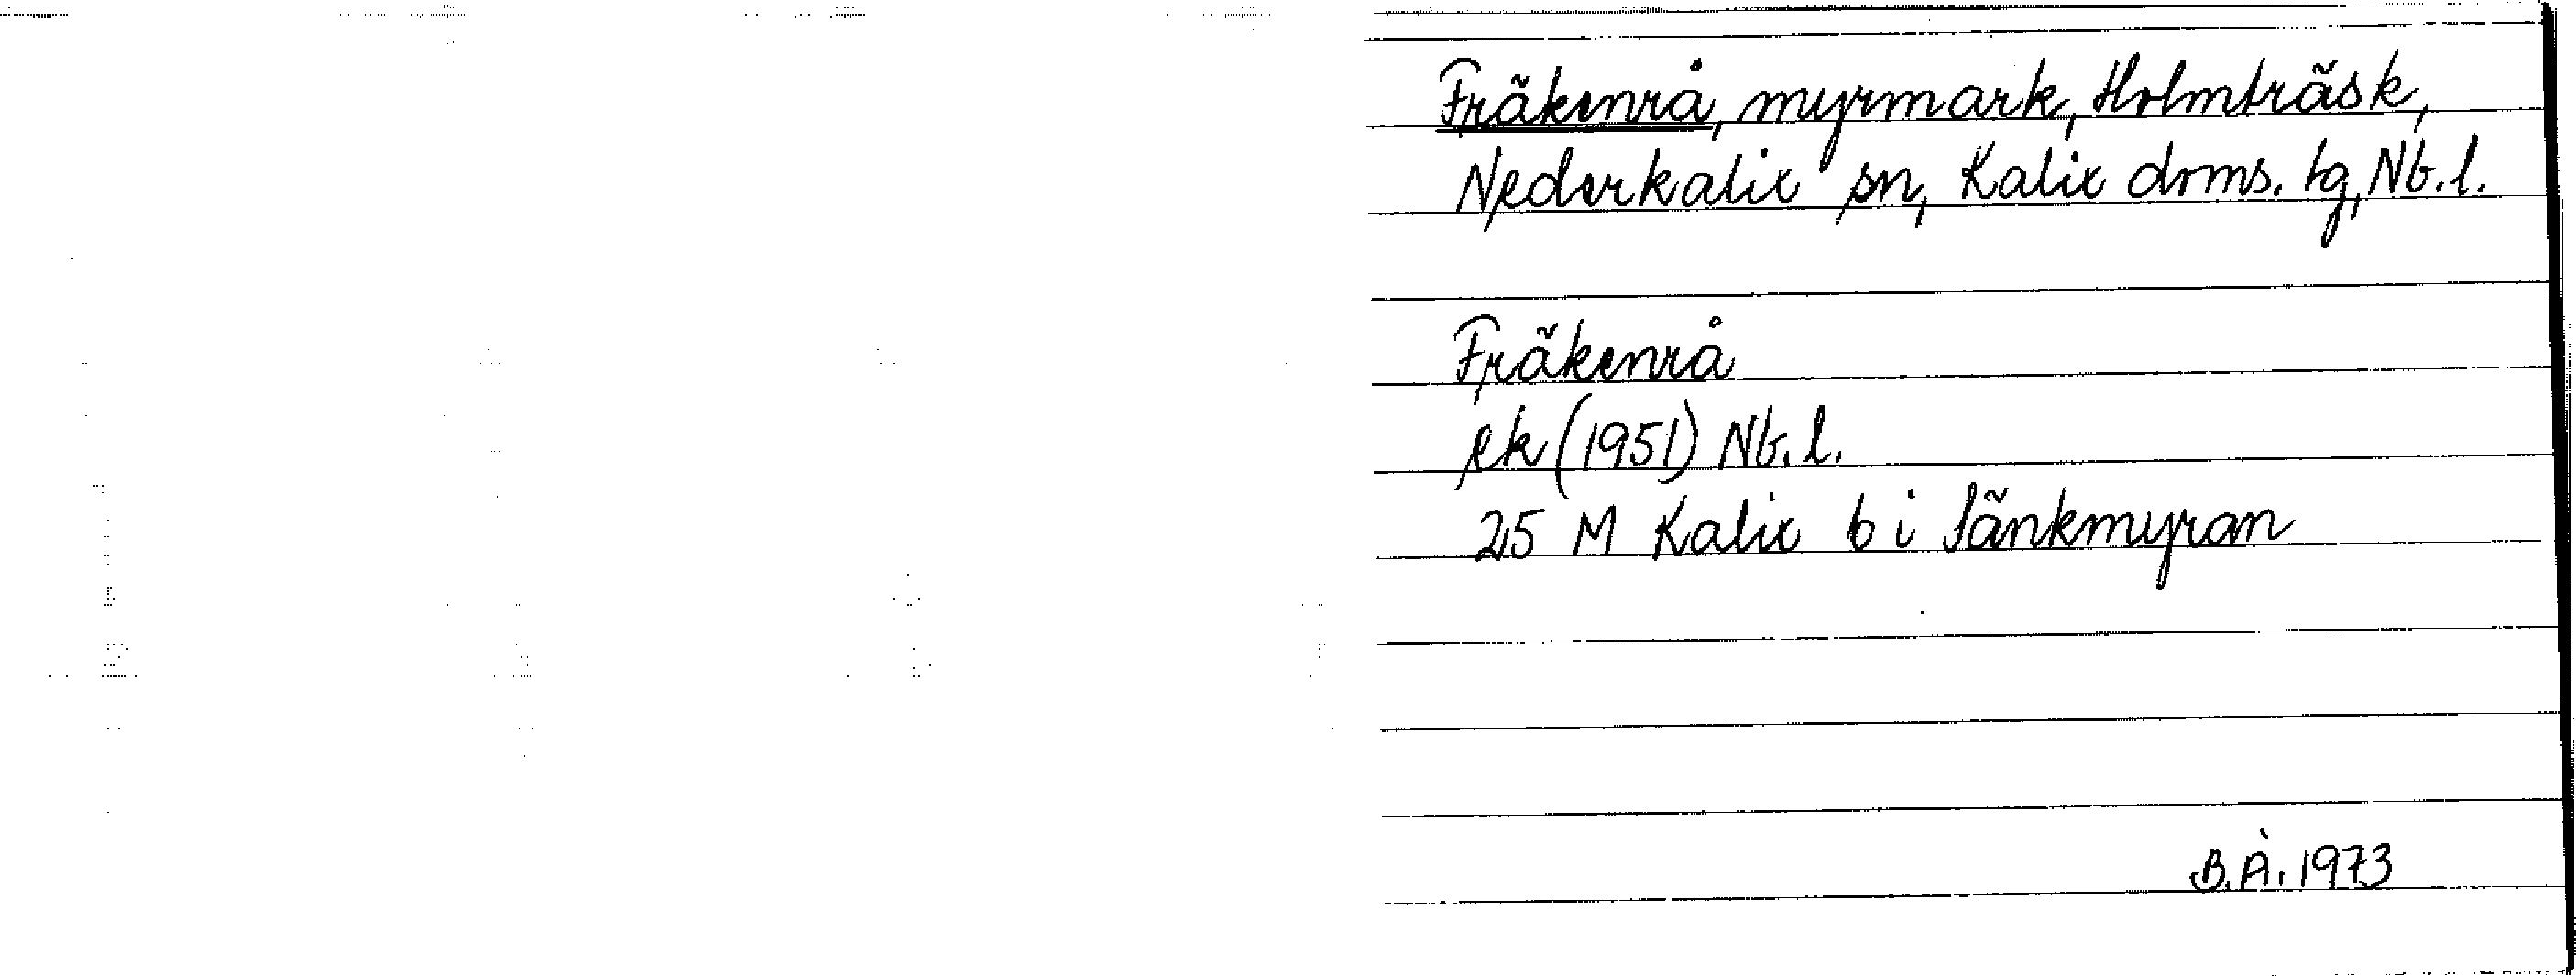 Fräkenrå, myrmark, Holmträsk,
Nederkalix sn, Kalix doms. tg, Nb. l.
Fräkenrå
ek (1951) Nb. l.
25 M Kalix 6 i Sänkmyran
B.Å. 1973